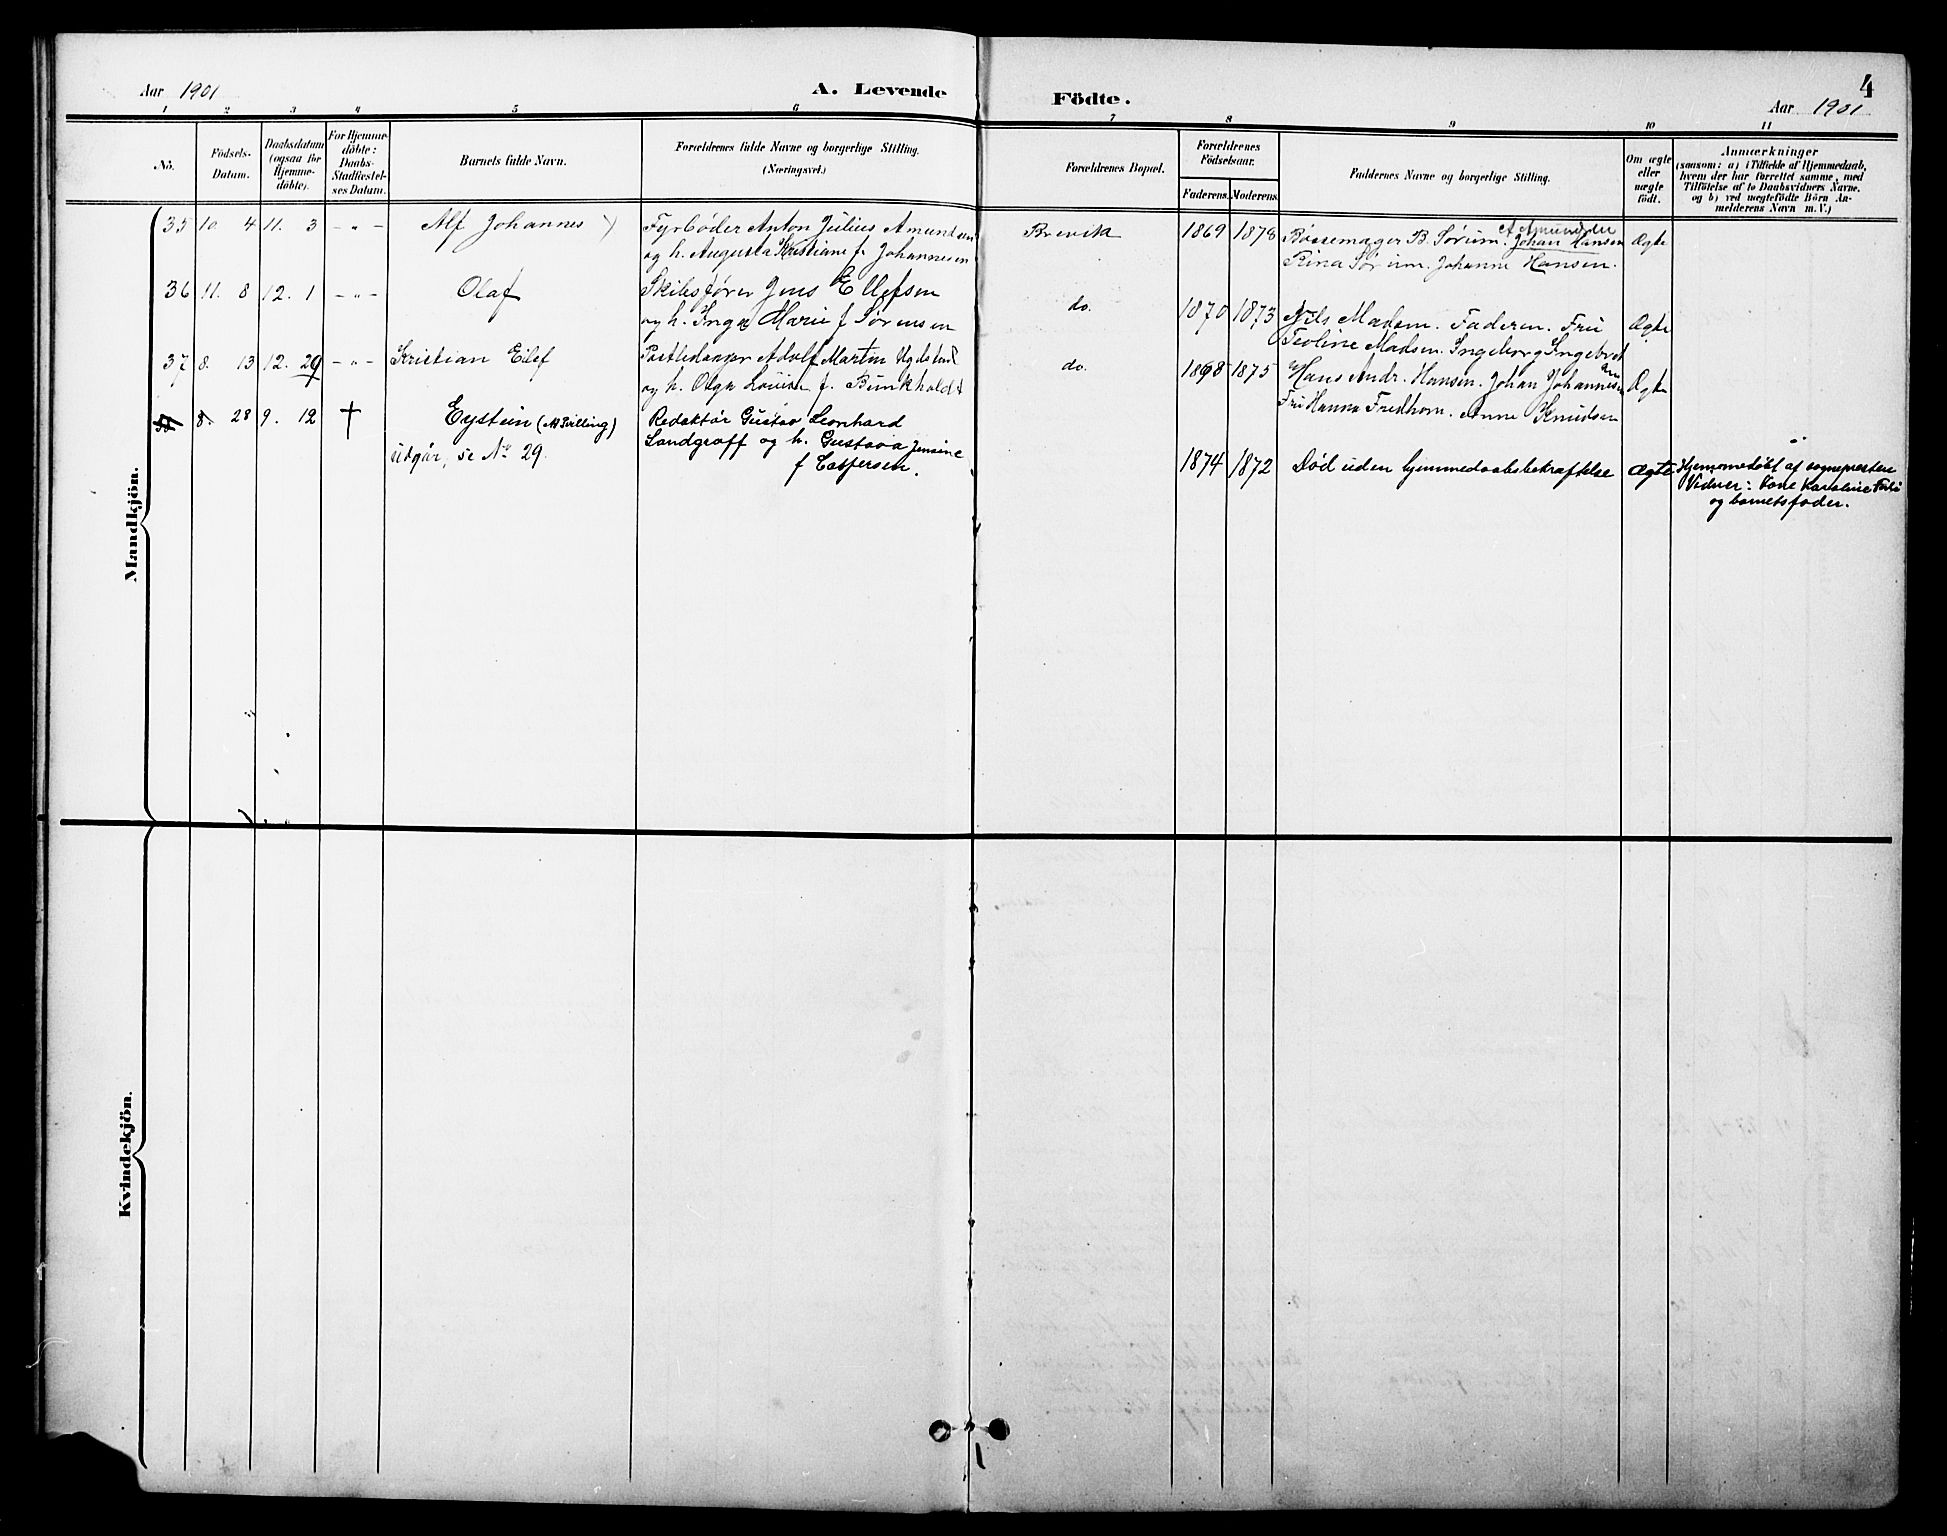 Aar 1901
A. Levende Födte.
4
Aar 1901
1 2 3 4 5 6 7 8 9 10 11
No.
Födsels-
Datum.
Daabsdatum
(ogsaa for
Hjemme-
döbte).
For Hjemme-
döbte:
Daabs-
Stadfæstel-
ses Datum.
Barnets fulde Navn.
Forældrenes fulde Navne og borgerlige Stilling.
(Næringsvei.)
Forældrenes Bopæl.
Forældrenes
Födselsaar.
Faderens. Moderens.
Faddernes Navne og borgerlige Stilling.
Om ægte
eller
uægte
födt.
Anmærkninger
(saasom: a) i Tilfælde af Hjemmedaab,
hvem der har forrettet samme, med
Tilföielse af to Daabsvidners Navne.
og b) ved uægtefödte Börn An-
melderens Navn m. V.)
Mandkjön.
35 10. 4 11. 3 - " - Alf Johannes Fyrbøder Anton Julius Amundsen
og h. Augusta Kristiane f. Johannesen
Brevik 1869 1878 Bøssemager B. Sørum. Johan Hansen
A Amundsen
Rina Sørum. Johanne Hansen.
Ægte
36 11. 8 12. 1 - " - Olaf Skibsfører Jens Ellefsen
og h. Inga Marie f Sørensen
do. 1870 1873 Nils Madsen. Faderen. Fru
Teoline Madsen. Ingeborg Ingebret
Ægte
37 8. 13 12. 29 - " - Kristian Eilef Adolf Martin
og h. Olga Louise f.
do. 1868 1875 Hans Andr. Hansen. Johan Johannesen
Fru Hanna Fredhom. Anne Knudsen
Ægte
8. 28 9. 12 † Eystein (Tvilling)
udgår, se No 29.
Redaktør Gustav Leonhard
Landgraff og h. Gustava Jensine
f Caspersen.
1874 1872 Død uden hjemmedaabsbekræftelse ægte
Hjemmedøbt af sognepresten
Vidner: Kone Karoline
og barnets fader.
Kvindekjön.